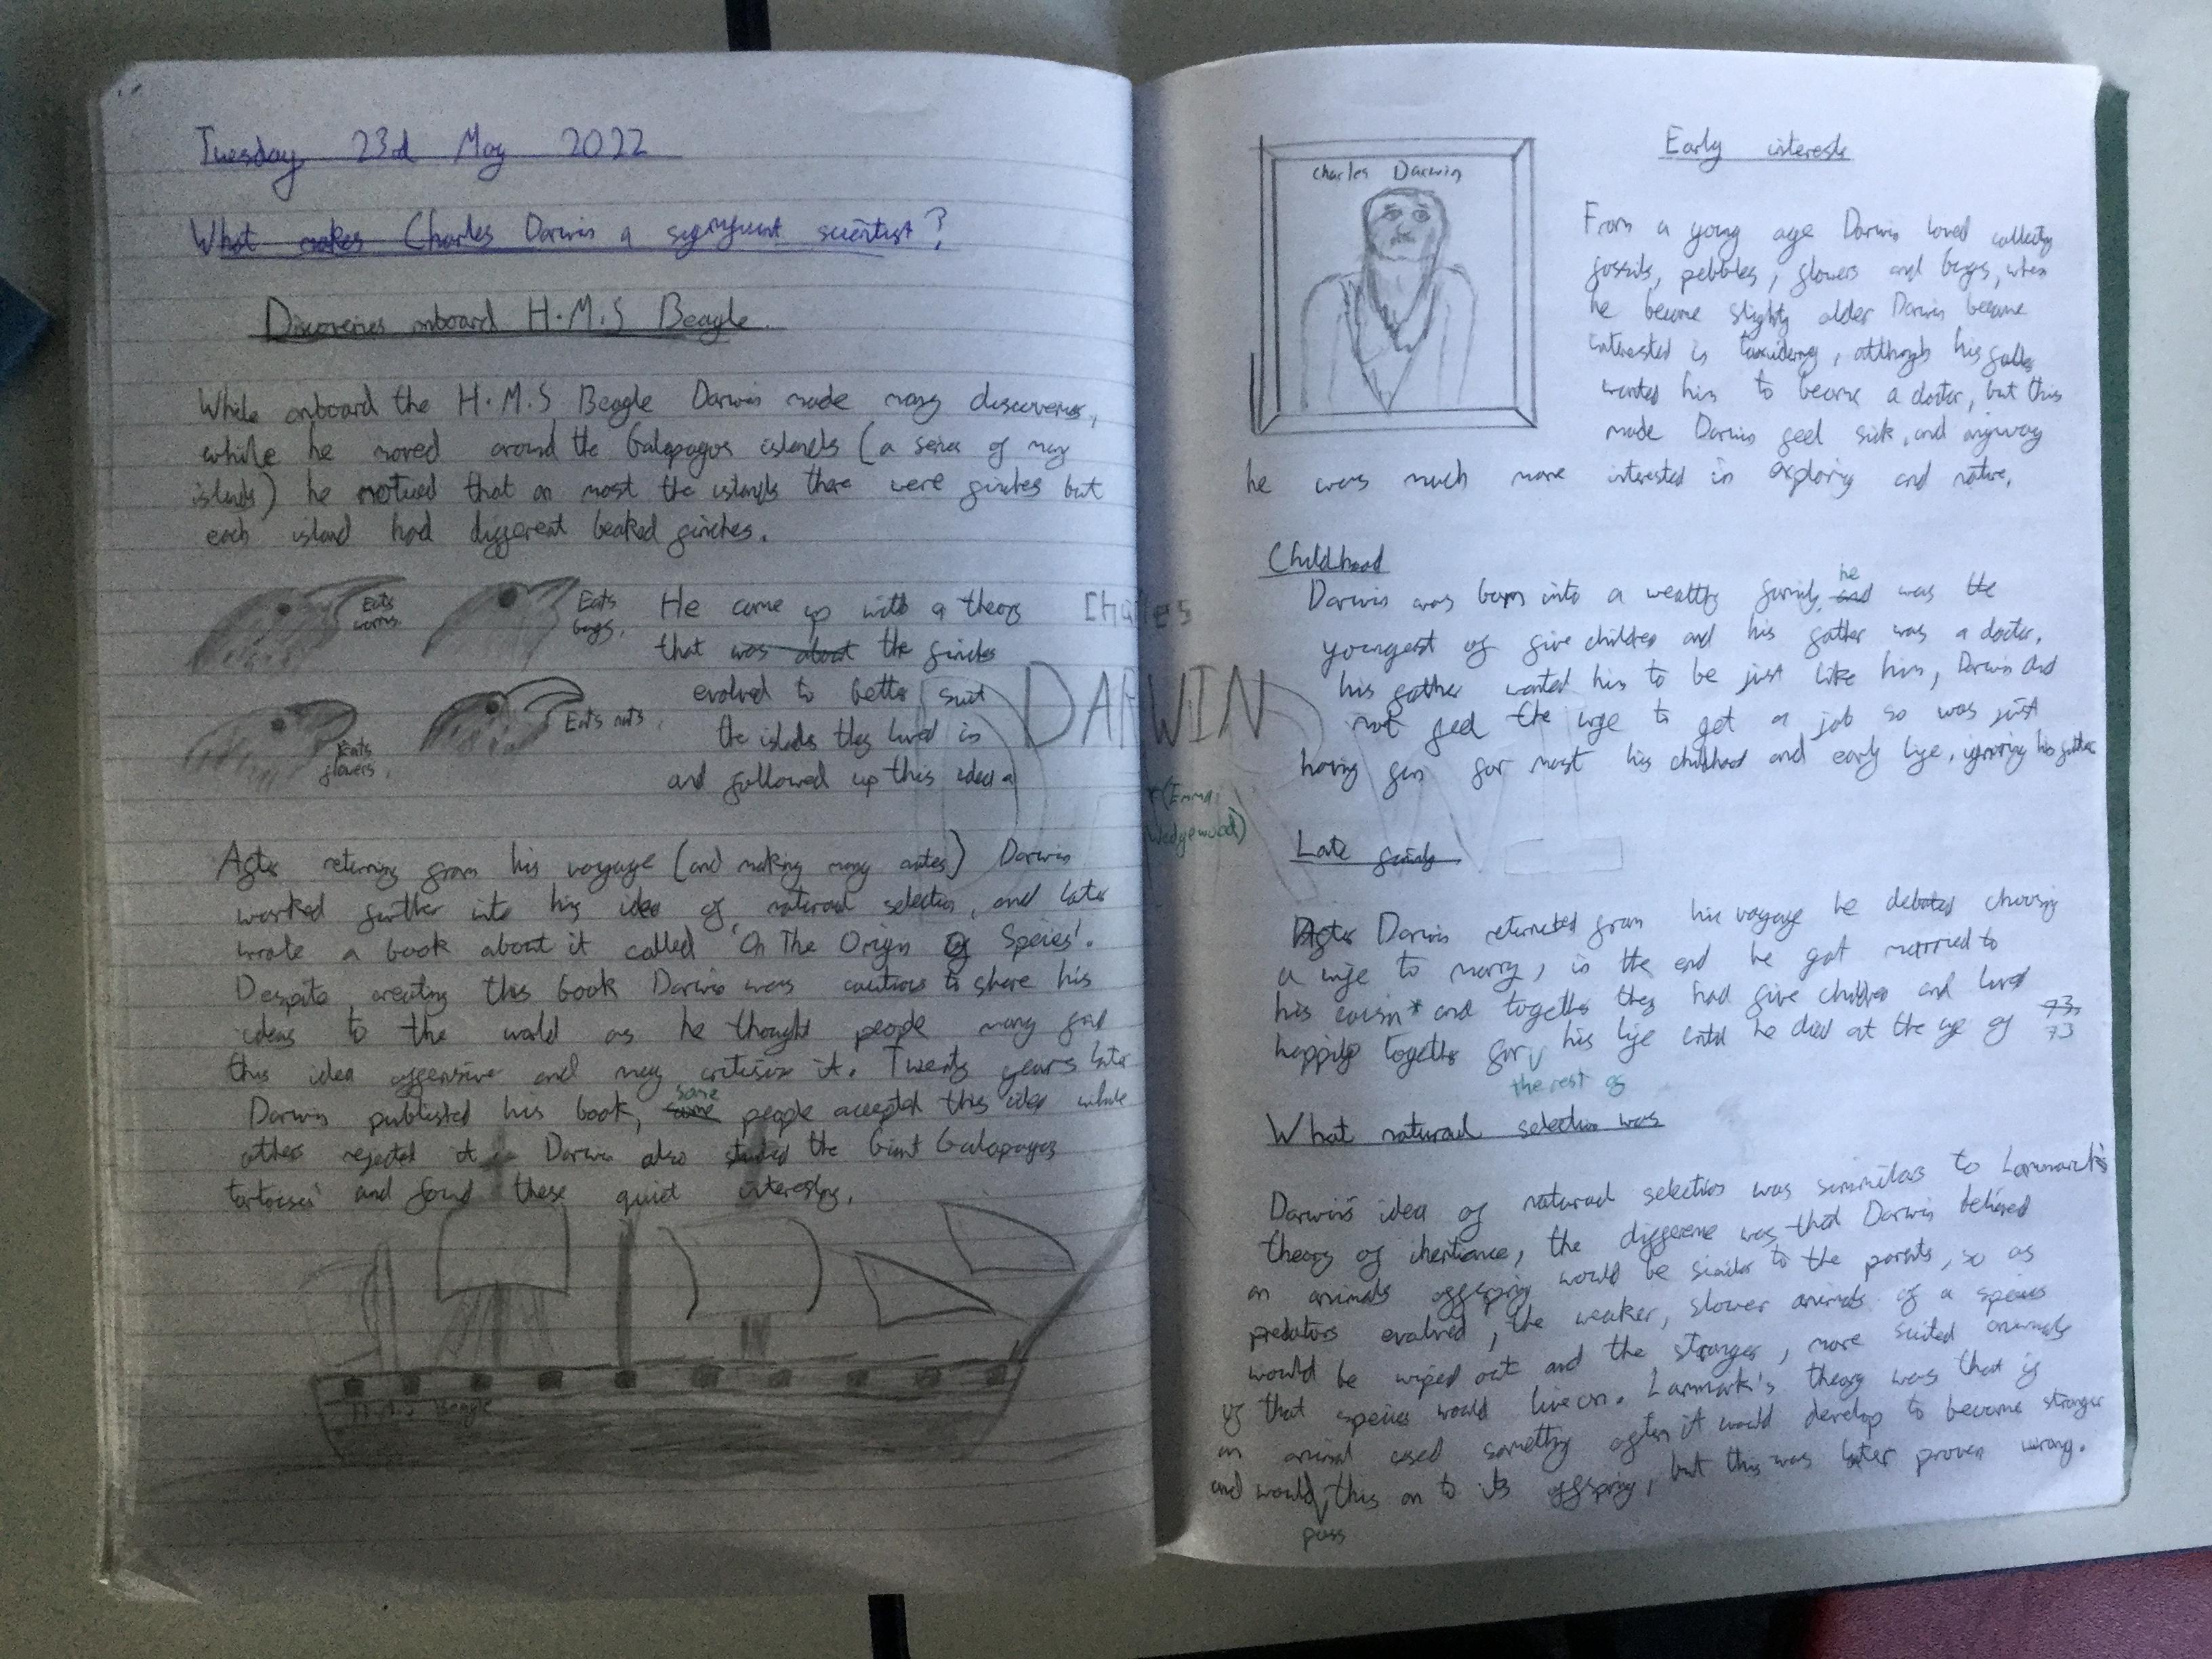 Tuesday 23rd May 2022
What makes Charles Darwin a significant scientist?
Discoveries onboard H.M.S Beagle.
While onboard the H.M.S Beagle Darwin made many discoveries,
while he moved around the Galapagos islands (a series of many
islands) he noticed that on most the islands there were finches but
each island had different beaked finches.
Eats
worms.
Eats
bugs.
Eats
flowers.
Eats nuts.
He came up with a theory
that was about the finches
evolved to better suit
the islands they lived in
and followed up this idea
After returning from his voyage (and making many notes) Darwin
worked further into his idea of natural selection, and later
wrote a book about it called 'On The Origin Of Species'.
Despite creating this book Darwin was cautious to share his
ideas to the world as he thought people may find
this idea offensive and may critisize it. Twenty years later
Darwin published his book, some people accepted this idea while
others rejected it. Darwin also studied the Giant Galapagos
tortoises and found these quiet interesting.
H.M.S Beagle
Charles
DARWIN
Charles Darwin
Early interests
From a young age Darwin loved collecting
fossils, pebbles, flowers and bugs, when
he became slightly older Darwin became
interested in taxidermy, although his father
wanted him to become a doctor, but this
made Darwin feel sick, and anyway
he was much more interested in exploring and nature.
Childhood
Darwin was born into a wealthy family, and he was the
youngest of five children and his father was a doctor.
his father wanted him to be just like him, Darwin did
not feel the urge to get a job so was just
having fun for most his childhood and early life, ignoring his father
*(Emma
Wedgewood)
Late family
After Darwin returnted from his voyage he debated choosing
a wife to marry, in the end he got married to
his cousin* and together they had five children and lived
happily together for the rest of his life until he died at the age of 73. 73
What natural selection was
Darwin's idea of natural selection was simmilar to Lammarck's
theory of ihertiance, the difference was that Darwin believed
an animals offspring would be similar to the parents, so as
predators evolved, the weaker, slower animals of a species
would be wiped out and the stronger, more suited animals
of that species would live on. Lammark's theory was that if
an animal used something often it would develop to become stronger
and would pass this on to its offspring, but this was later proven wrong.